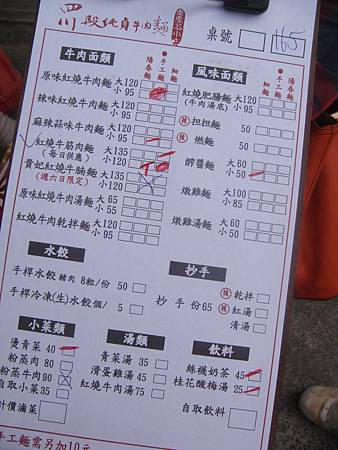 四川 段純貞牛肉麵
桌號 1165
牛肉麵類
陽春麵 手工麵 細麵
原味紅燒牛肉麵 大120 小 95
辣味紅燒牛肉麵 大120 小 95
麻辣蒜味牛肉麵 大120 小 95
紅燒牛筋肉麵 (每日供應) 大135 小
貴妃紅燒牛腩麵 (週六日限定) 大135 小
原味紅燒牛肉湯麵 大 65 小 55
紅燒牛肉乾拌麵 大120 小 95
風味麵類
陽春麵 手工麵 細麵
紅燒肥腸麵 (牛肉湯底) 大120 小 95
辣 担担麵 50
辣 燃麵 50
醡醬麵 大 60 小 50
燉雞麵 大100 小 85
燉雞湯麵 大 60 小 50
水餃
手桿水餃 豬肉 8粒/份 50
手桿冷凍(生)水餃個/ 5
抄手
抄手 份65 辣 乾拌
辣 紅湯
清湯
小菜類
燙青菜 40
粉蒸肉 80
粉蒸牛肉90
自取小菜35
計價滷菜
湯類
青菜湯 35
滑蛋雞湯 45
紅燒牛肉湯75
飲料
絲襪奶茶 45
桂花酸梅湯 25
自取飲料
手工麵需另加10元